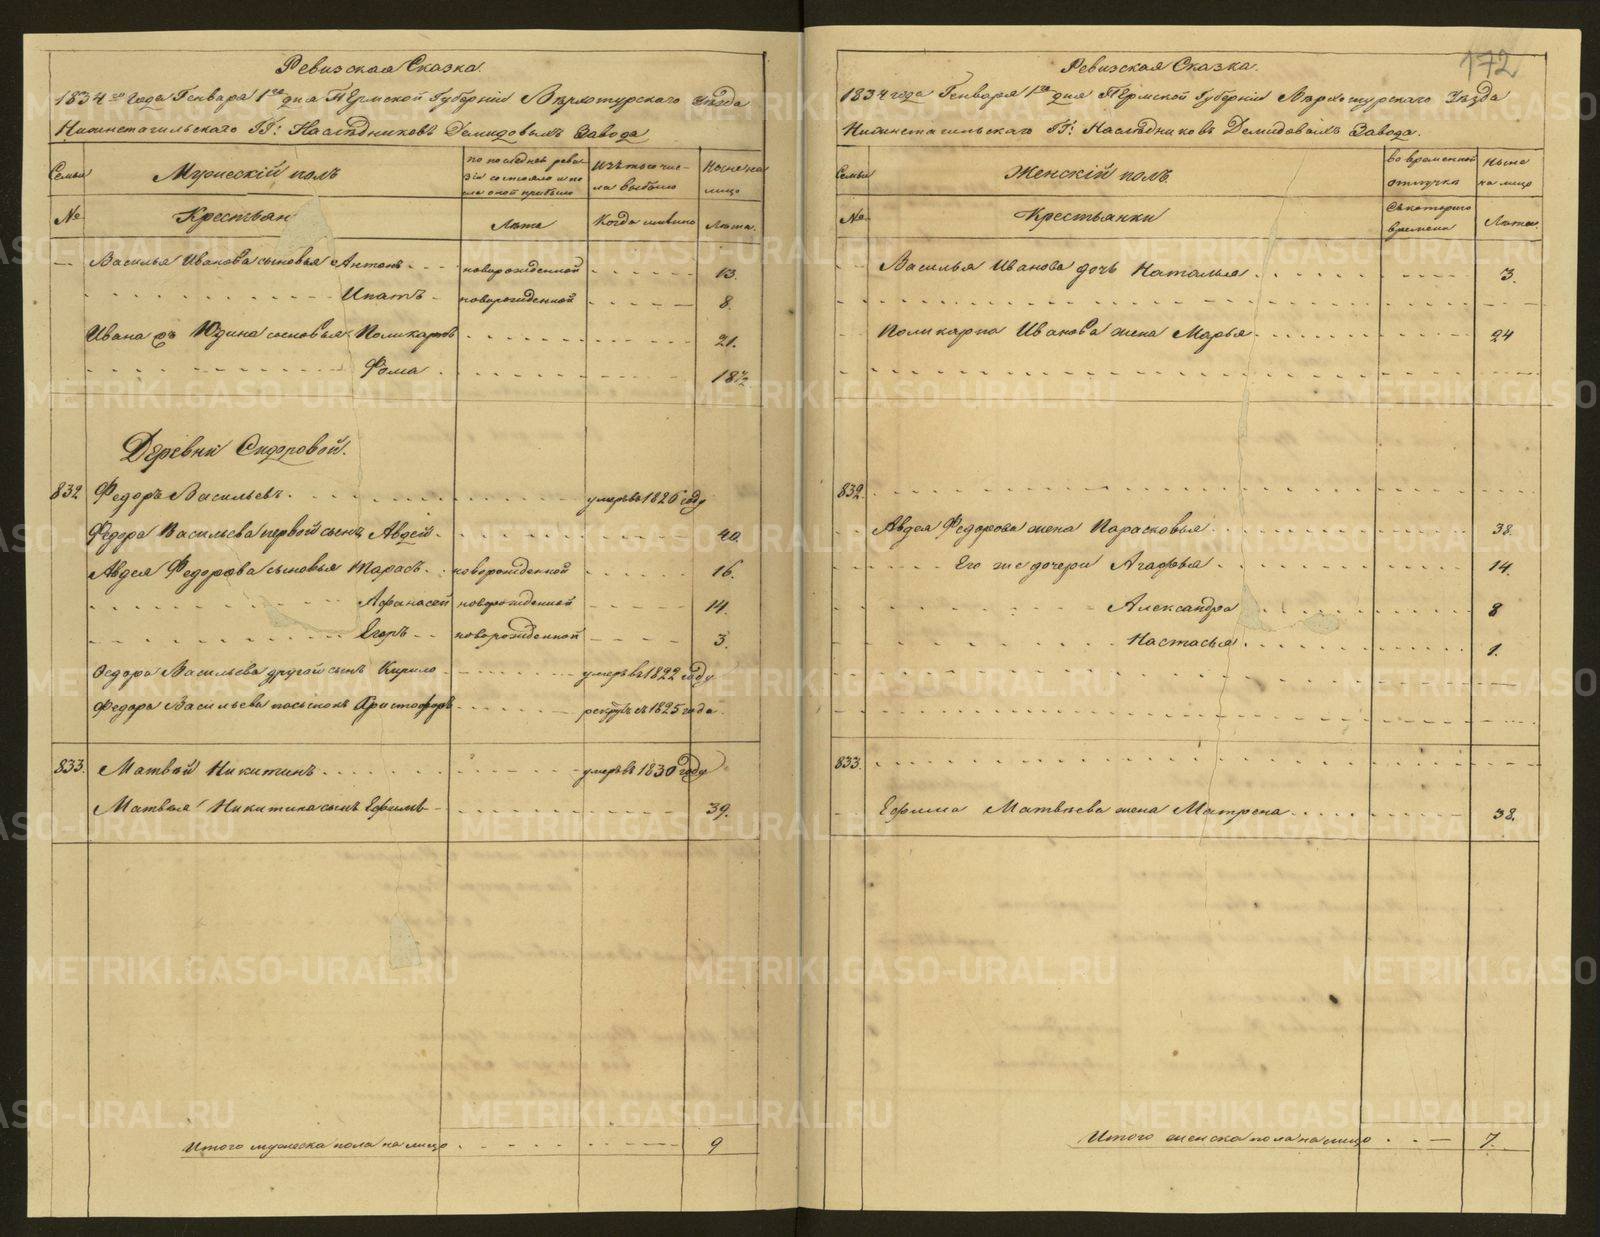 Ревизская Сказка.
1834го Года Генваря 1го дня Пермской Губернии Верхотурского Уезда
Нижнетагильского ГГ: Наследниковъ Демидовыхъ Завода
Семьи
Мужескій полъ
по последней реви-
зіи состояло и по-
сле оной прибыло
Изъ того чис-
ла выбыло
Ныне на
лицо
№
Крестьян
Лета
Когда имянно
Лета.
Василья Иванова сыновья Антонъ новорожденной 13.
Ипатъ новорожденной 8.
Ивана Юдина сыновья Поликарпъ 21.
Фома 18½
Деревни Сидоровой.
832 Федоръ Васильевъ умеръ въ 1826 году
Федора Васильева первой сынъ Авдей 40.
Авдея Федорова сыновья Тарасъ новорожденной 16.
Афанасей новорожденной 14.
Егоръ новорожденной 3.
Федора Васильева другой сынъ Кирило умеръ въ 1822 году
Федора Васильева пасынокъ Христофоръ рекрутъ съ 1825 года
833. Матвей Никитинъ умеръ въ 1830 году
Матвея Никитина сынъ Ефимъ 39.
Итого мужеска пола на лицо 9
172
Ревизская Сказка.
1834 года Генваря 1го дня Пермской Губернии Верхотурского Уезда
Нижнетагильского ГГ: Наследниковъ Демидовыхъ Завода.
Семьи
Женскій полъ.
во временной
отлучке
Ныне
на лицо
№
Крестьянки
Съ котораго
времени
Лета
Василья Иванова дочь Наталья 3.
Поликарпа Иванова жена Марья 24
832.
Авдея Федорова жена Парасковья 38.
Его же дочери Агафья 14.
Александра 8
Настасья 1.
833.
Ефима Матвеева жена Матрена 38.
Итого женска пола на лицо 7.
METRIKI.GASO-URAL.RU